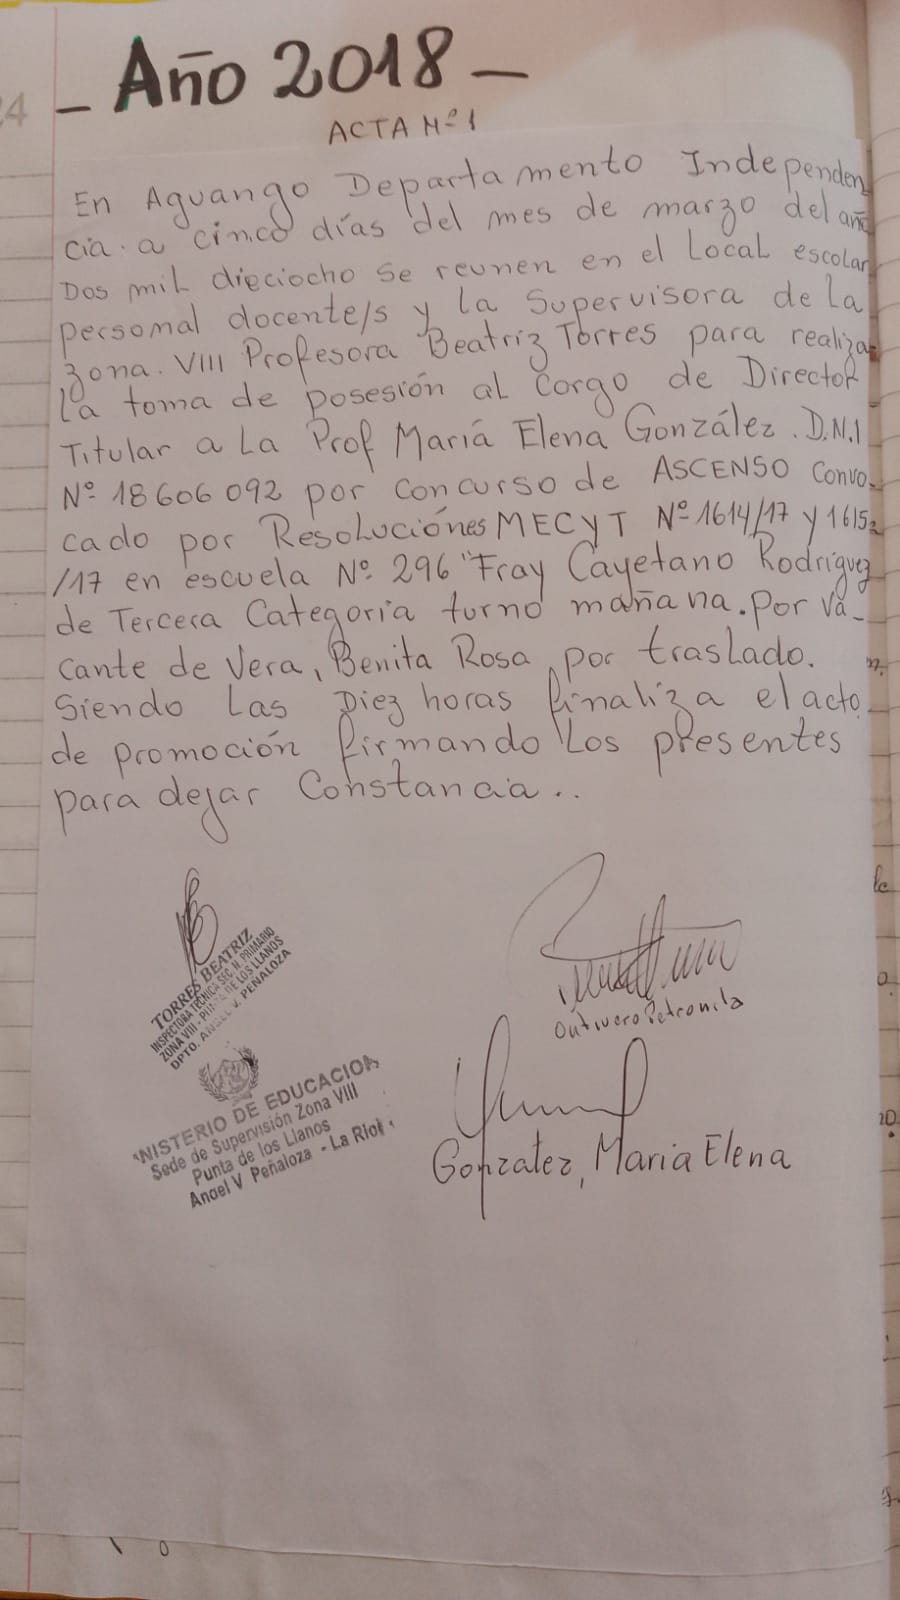 - Año 2018 -
ACTA Nº 1
En Aguango Departamento Independen
cia. a cinco días del mes de marzo del año
Dos mil dieciocho se reunen en el Local escolar
personal docente/s y la Supervisora de la
zona. VIII Profesora Beatriz Torres para realiza
la toma de posesión al Cargo de Director
Titular a La Prof María Elena González. D.N.I
Nº 18606092 por Concurso de ASCENSO Convo-
cado por Resoluciónes MECyT Nº 1614/17 y 1615
/17 en escuela Nº 296 "Fray Cayetano Rodríguez
de Tercera Categoria turno mañana. Por Va-
cante de Vera, Benita Rosa, por traslado.
Siendo Las Diez horas finaliza el acto
de promoción firmando Los presentes
para dejar Constancia..
TORRES BEATRIZ
INSPECTORA TÉCNICA SEC. N. PRIMARIO
ZONA VIII - PUNTA DE LOS LLANOS
DPTO. ANGEL V. PEÑALOZA
Ontivero Petronila
NISTERIO DE EDUCACION
Sede de Supervisión Zona VIII
Punta de los Llanos
Angel V Peñaloza - La Rioja
Gonzalez, Maria Elena